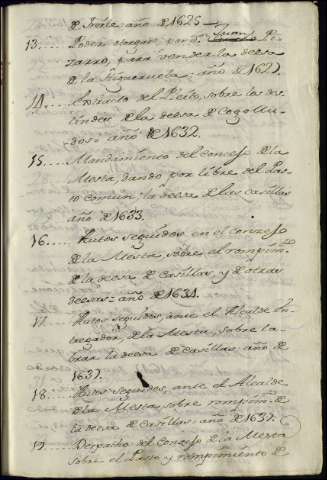 de Freile: año de 1625
13.... Poder otorgar, por Dn Juan Pi-
zarro, para vender la desa
de la Higueruela: año de 1627.
14.... Extracto del Pleito, sobre los des-
lindes de la deesa de Cogollu-
dos: año de 1632.
15.... Mandamiento del Concejo de la
Mesta, dando por libre del Pas-
to comun la deesa de las Casillas
año de 1633.
16.... Autos seguidos en el Concejo
de la Mesta, sobre el rompimto
de la deesa de Casillas, y de otras
deesas: año de 1634.
17.... Autos seguidos, ante el Alcalde En-
tregador, de la Mesta, sobre la-
brar la deesa de Casillas, año de
1637.
18.... Autos seguidos, ante el Alcalde
de la Mesta, sobre rompimto de
la deesa de Casillas: año de 1637.
19.... Despacho del Concejo de la Mesta
sobre el Puso y rompimiento de